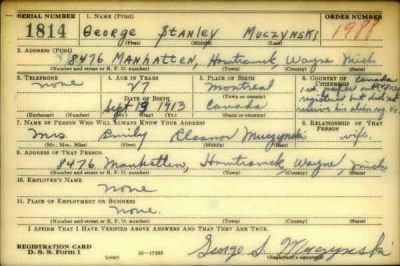 SERIAL NUMBER 1. NAME (Print) ORDER NUMBER
1814 GEORGE STANLEY MUCZYNSKI 1988
(First) (Middle) (Last)
2. ADDRESS (Print)
8476 MANHATTEN, Hamtramck, Wayne Mich
(Number and street or R. F. D. number) (Town) (County) (State)
3. TELEPHONE 4. AGE IN YEARS 5. PLACE OF BIRTH 6. COUNTRY OF CITIZENSHIP
none 27 Montreal Canada
DATE OF BIRTH (Town or county)
1st papers
Sept 19 1913 Canada registered but
(Exchange) (Number) (Mo.) (Day) (Yr.) (State or country)
7. NAME OF PERSON WHO WILL ALWAYS KNOW YOUR ADDRESS 8. RELATIONSHIP OF THAT PERSON
Mrs. Emily Eleanor Muczynski wife.
(Mr., Mrs., Miss) (First) (Middle) (Last)
9. ADDRESS OF THAT PERSON
8476 Manhatten, Hamtramck Wayne, Mich
(Number and street or R. F. D. number) (Town) (County) (State)
10. EMPLOYER'S NAME
none
11. PLACE OF EMPLOYMENT OR BUSINESS
None.
(Number and street or R. F. D. number) (Town) (County) (State)
I AFFIRM THAT I HAVE VERIFIED ABOVE ANSWERS AND THAT THEY ARE TRUE.
REGISTRATION CARD
D. S. S. Form 1 (over) 16-17105 George S. Muczynski
(Registrant's signature)